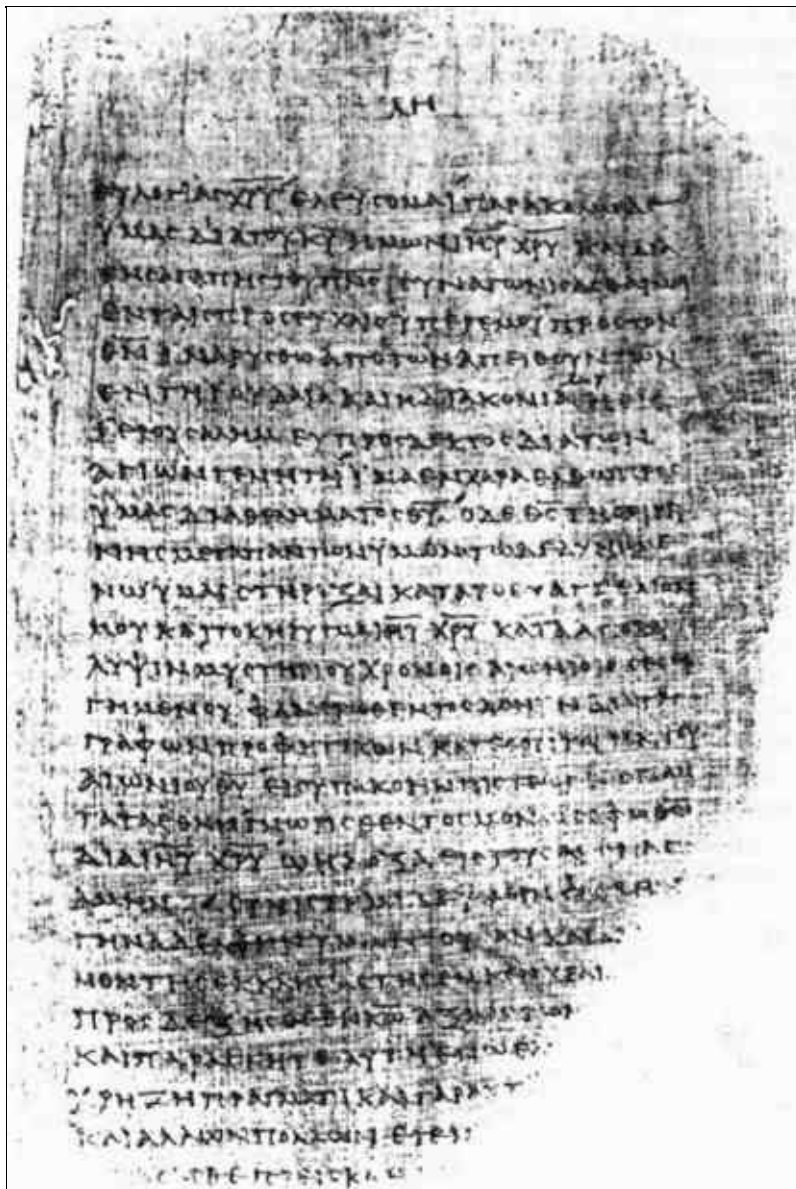 ΛΗ
ΕΥΛΟΓΙΑΣ ΧΡΥ ΕΛΕΥΣΟΜΑΙ ΠΑΡΑΚΑΛΩ ΔΕ
ΥΜΑΣ ΔΙΑ ΤΟΥ ΚΥ ΗΜΩΝ ΙΗΥ ΧΡΥ ΚΑΙ ΔΙΑ
ΤΗΣ ΑΓΑΠΗΣ ΤΟΥ ΠΝΣ ΣΥΝΑΓΩΝΙΣΑΣΘΑΙ ΜΟΙ
ΕΝ ΤΑΙΣ ΠΡΟΣΕΥΧΑΙΣ ΥΠΕΡ ΕΜΟΥ ΠΡΟΣ ΤΟΝ
ΘΝ ΙΝΑ ΡΥΣΘΩ ΑΠΟ ΤΩΝ ΑΠΕΙΘΟΥΝΤΩΝ
ΕΝ ΤΗ ΙΟΥΔΑΙΑ ΚΑΙ Η ΔΙΑΚΟΝΙΑ ΜΟΥ Η ΕΙΣ
ΙΕΡΟΥΣΑΛΗΜ ΕΥΠΡΟΣΔΕΚΤΟΣ ΔΙΑ ΤΩΝ
ΑΓΙΩΝ ΓΕΝΗΤΑΙ ΙΝΑ ΕΝ ΧΑΡΑ ΕΛΘΩ ΠΡΟΣ
ΥΜΑΣ ΔΙΑ ΘΕΛΗΜΑΤΟΣ ΘΥ Ο ΔΕ ΘΣ ΤΗΣ ΕΙΡΗ
ΝΗΣ ΜΕΤΑ ΠΑΝΤΩΝ ΥΜΩΝ ΤΩ ΔΕ ΔΥΝΑΜΕ
ΝΩ ΥΜΑΣ ΣΤΗΡΙΞΑΙ ΚΑΤΑ ΤΟ ΕΥΑΓΓΕΛΙΟΝ
ΜΟΥ ΚΑΙ ΤΟ ΚΗΡΥΓΜΑ ΙΗΥ ΧΡΥ ΚΑΤΑ ΑΠΟΚΑ
ΛΥΨΙΝ ΜΥΣΤΗΡΙΟΥ ΧΡΟΝΟΙΣ ΑΙΩΝΙΟΙΣ
ΓΗΜΕΝΟΥ ΦΑΝΕΡΩΘΕΝΤΟΣ ΔΕ ΝΥΝ ΔΙΑ ΤΕ
ΓΡΑΦΩΝ ΠΡΟΦΗΤΙΚΩΝ ΚΑΤ ΕΠΙΤΑΓΗΝ ΤΟΥ
ΑΙΩΝΙΟΥ ΘΥ ΕΙΣ ΥΠΑΚΟΗΝ ΠΙΣΤΕΩΣ ΕΙΣ ΠΑΝ
ΤΑ ΤΑ ΕΘΝΗ ΓΝΩΡΙΣΘΕΝΤΟΣ ΜΟΝΩ ΣΟΦΩ ΘΩ
ΔΙΑ ΙΗΥ ΧΡΥ Ω Η ΔΟΞΑ ΕΙΣ ΤΟΥΣ ΑΙΩΝΑΣ
ΑΜΗΝ
ΤΗΝ ΑΔΕΛΦΗΝ ΥΜΩΝ ΟΥΣΑΝ ΚΑΙ
ΝΟΝ ΤΗΣ ΕΚΚΛΗΣΙΑΣ ΤΗΣ ΕΝ ΚΕΝΧΡΕΑΙΣ
ΠΡΟΣΔΕΞΗΣΘΕ ΕΝ ΚΩ ΑΞΙΩΣ ΤΩΝ
ΚΑΙ ΠΑΡΑΣΤΗΤΕ ΑΥΤΗ ΕΝ Ω
ΧΡΗΖΗ ΠΡΑΓΜΑΤΙ ΚΑΙ ΓΑΡ
ΚΑΙ ΑΛΛΩΝ ΠΟΛΛΩΝ